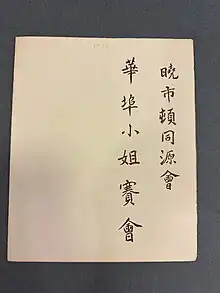 曉市頓同源會
華埠小姐賽會